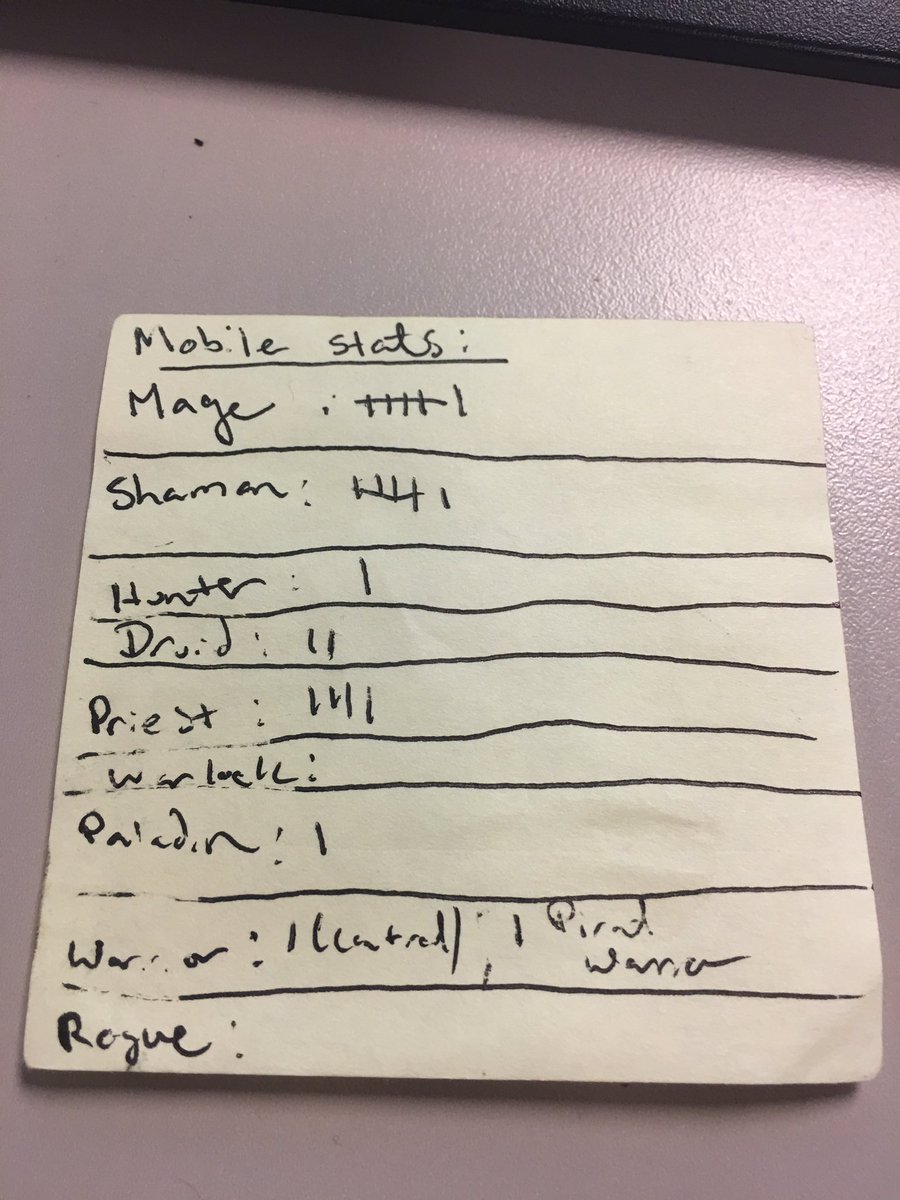 Mobile stats:
Mage : 卌 |
Shaman: 卌 |
Hunter : |
Druid : ||
Priest : ||||
Warlock:
Paladin: |
Warrior: | (Control) ; | Pirat
Warrior
Rogue: